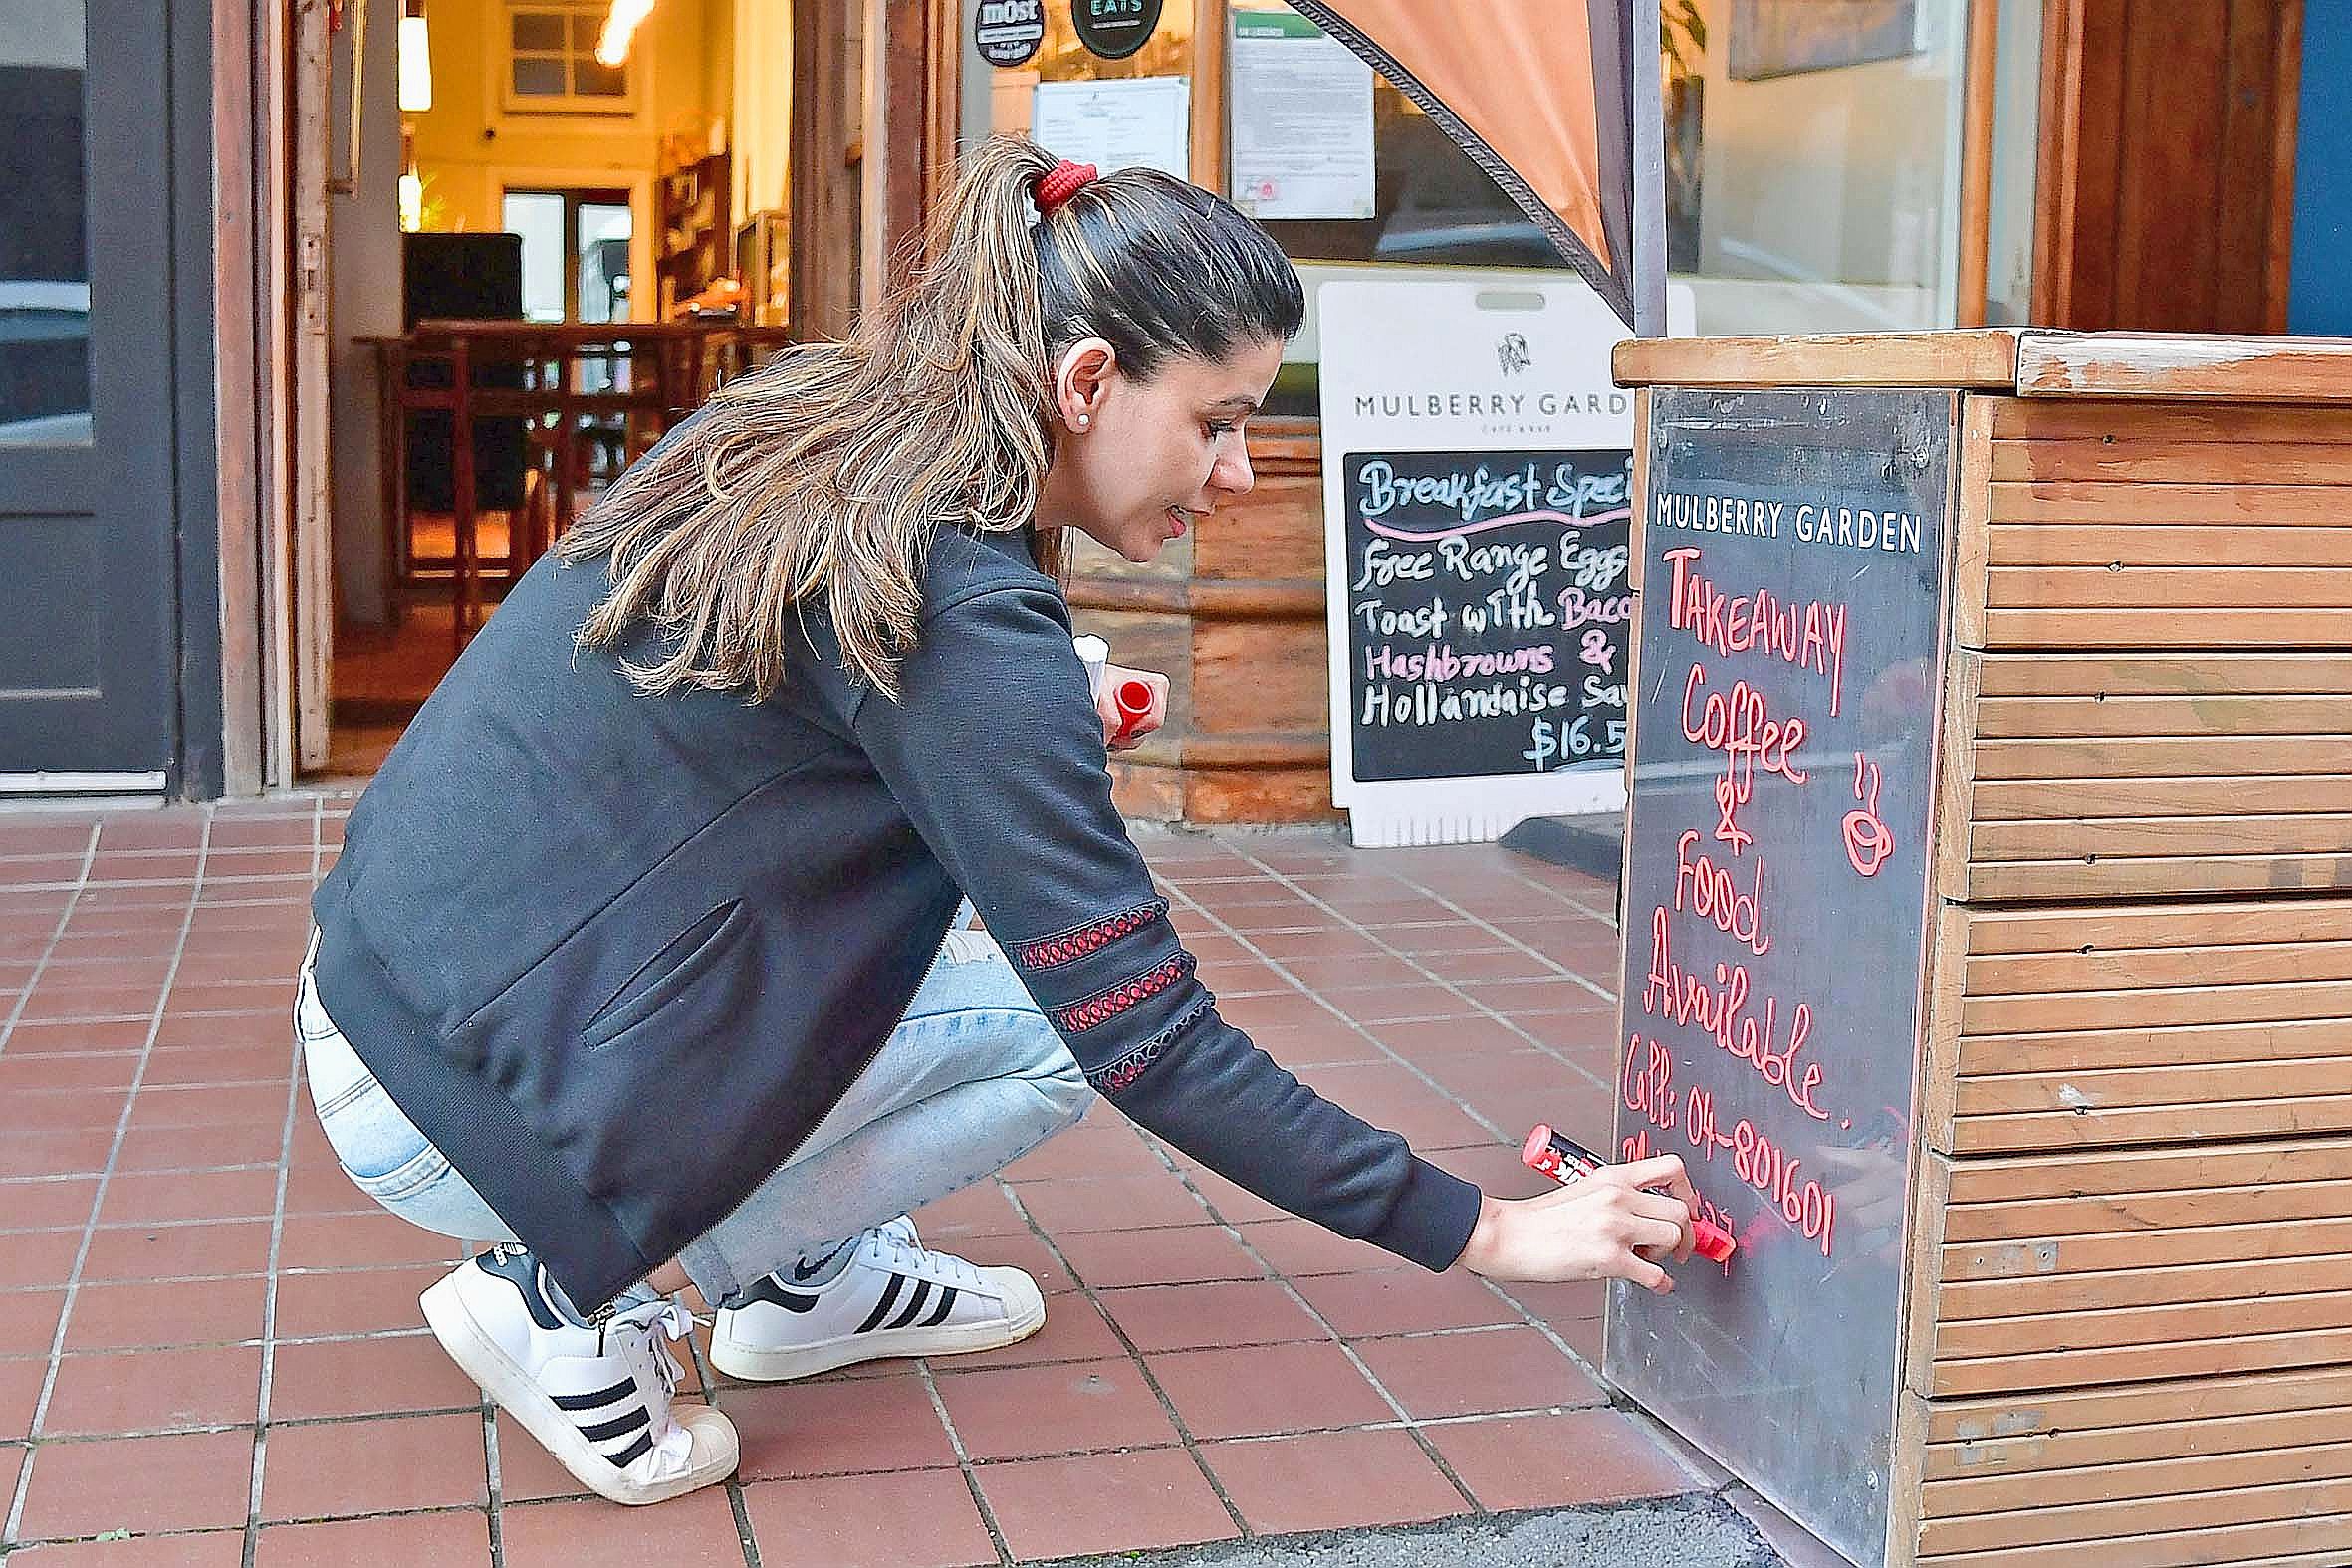 most
EATS
MULBERRY GARD
Breakfast Speci
Free Range Eggs
Toast with Baco
Hashbrowns &
Hollandaise Sau
$16.5
MULBERRY GARDEN
TAKEAWAY
Coffee
&
Food
Available.
Call: 04-801601